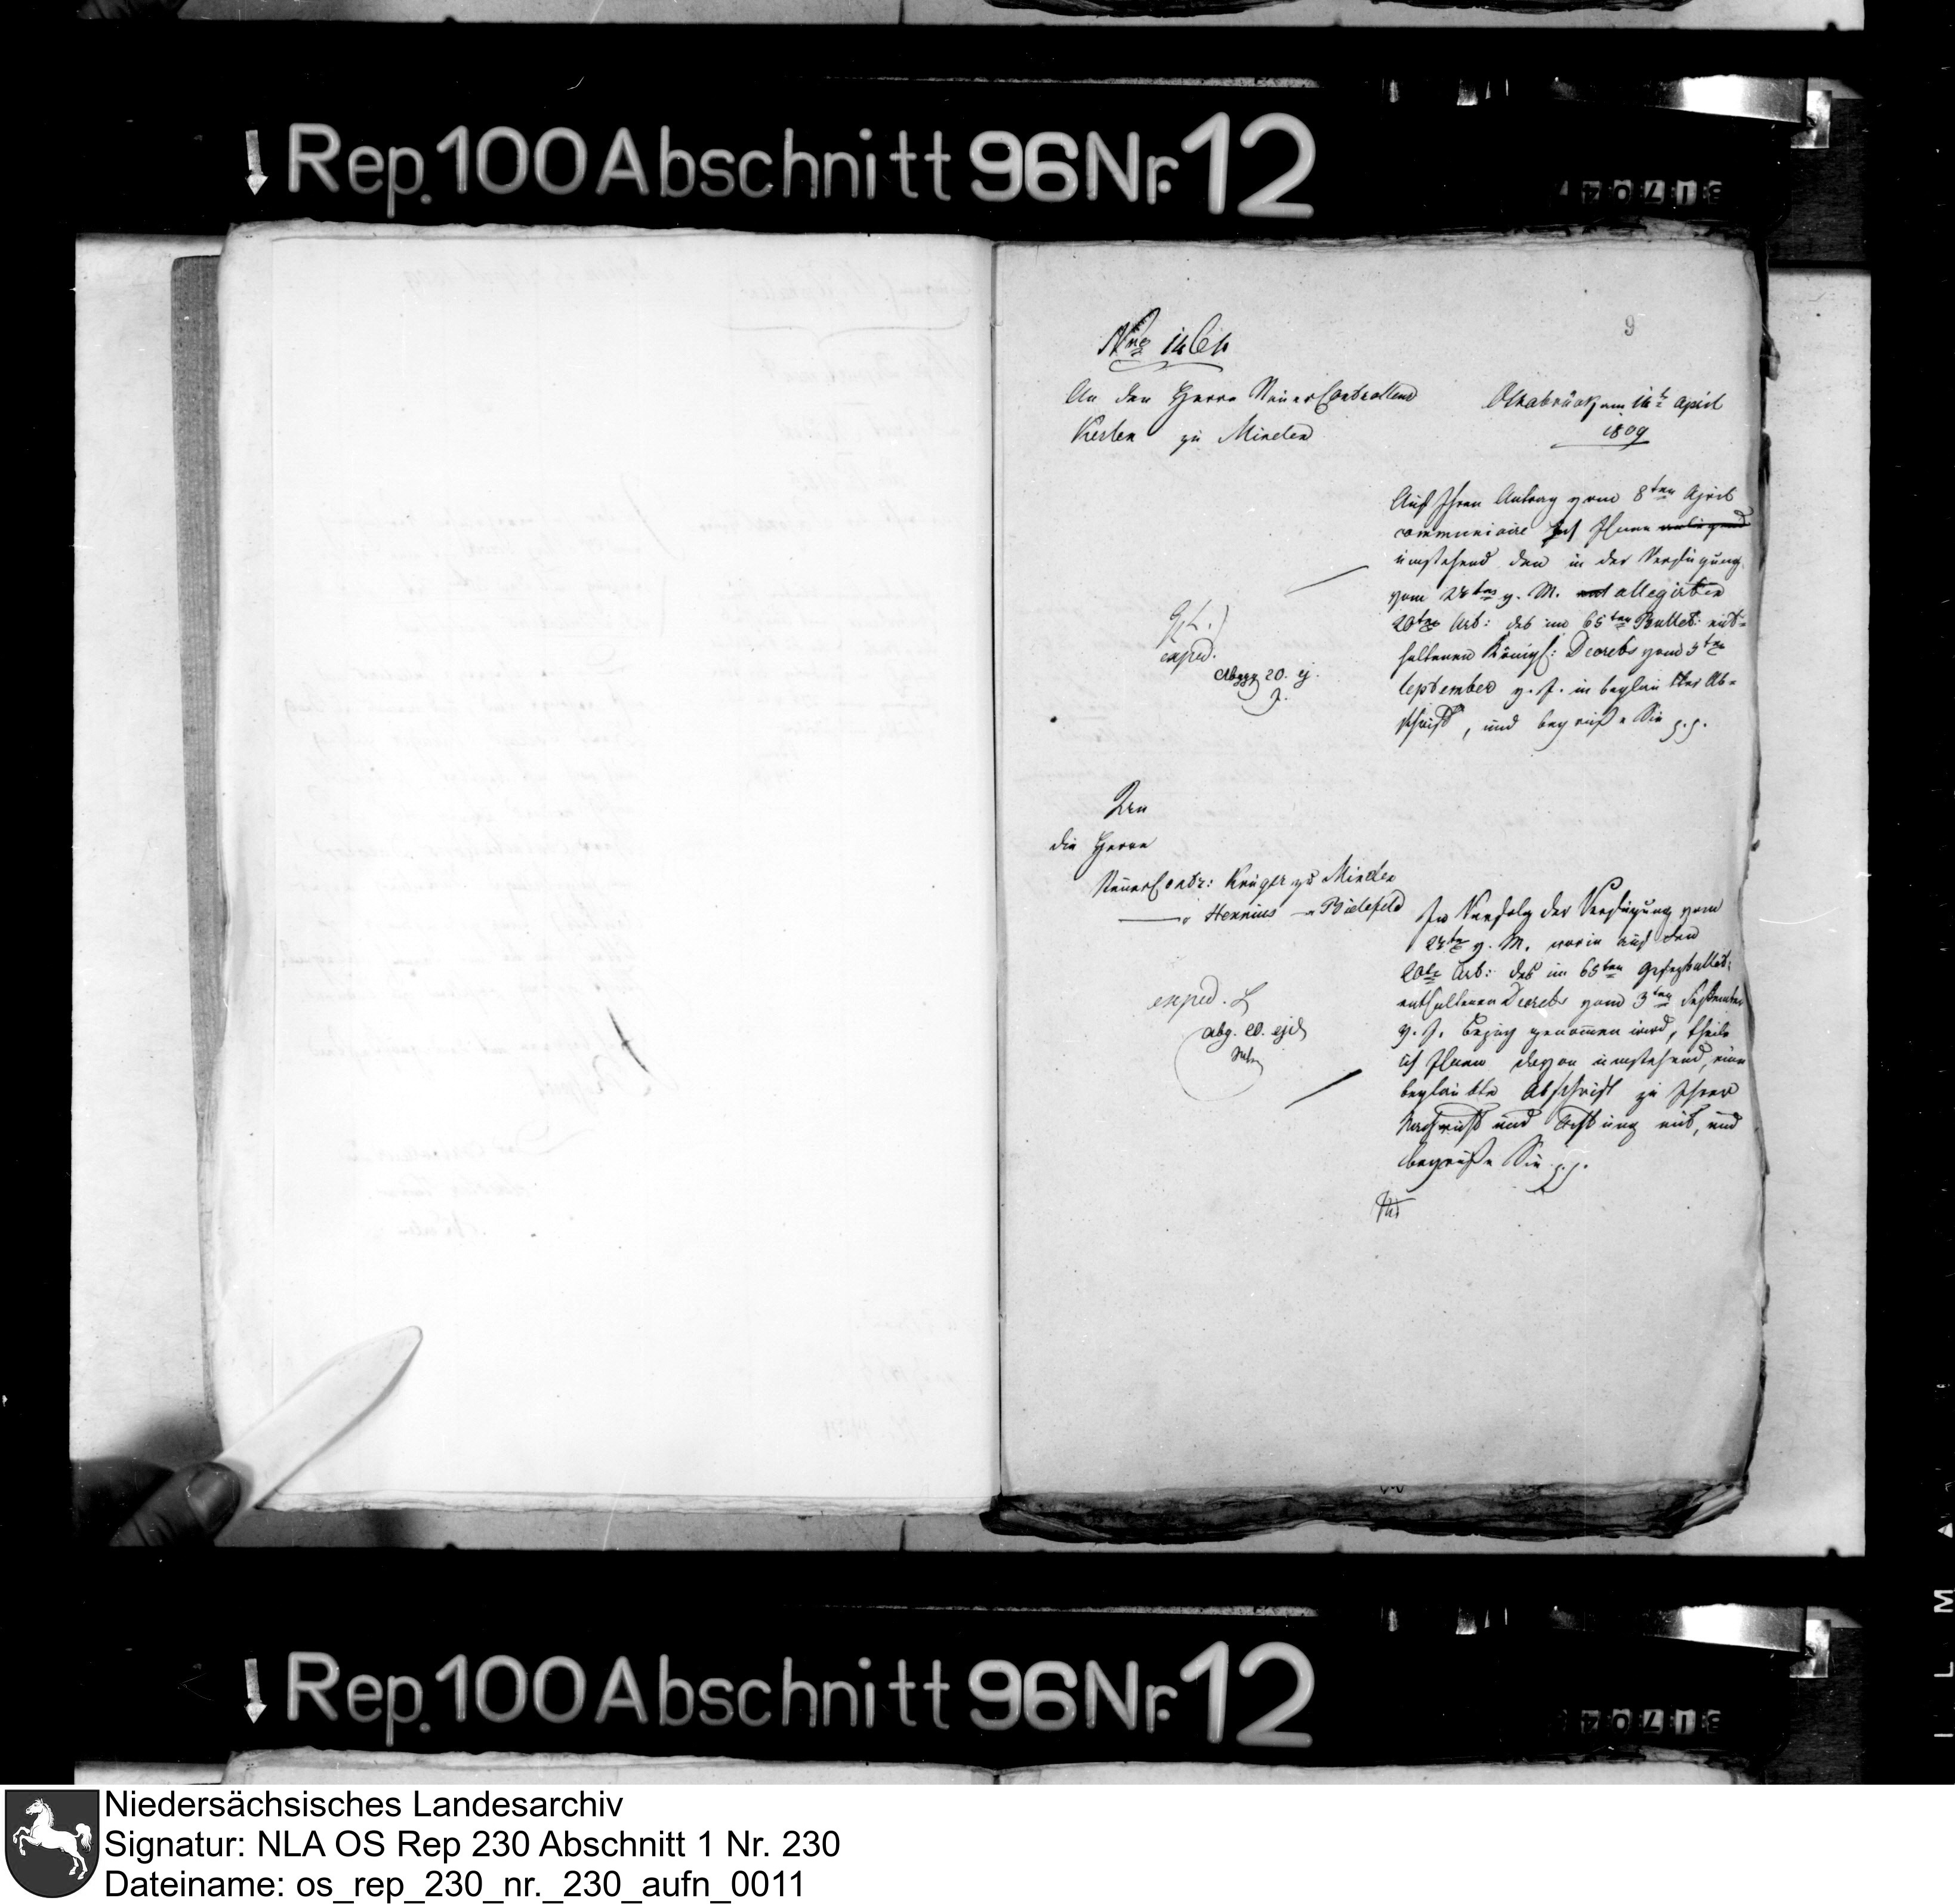 Rep. 100 Abschnitt 96 Nr. 12
9
Nro 1464
An den Herrn Steuer Controlleur
Kerten zu Minden
Osnabrück am 14t April
1809
Auf Ihren Antrag vom 8ten April
communicire ich Ihnen anliegend
umstehend den in der Verfügung
vom 28ten v. M. allegirten
20ten Art: des im 65ten Bullet: ent-
haltenen Königl: Decrets vom 3ten
September v. J. in beglaubter Ab-
schrift, und begrüße Sie p.p.
exped.
abgg 20. ej.
An
die Herrn
Steuer Contr: Krüger zu Minden
" Hennius " Bielefeld
Im Verfolg der Verfügung vom
28ten v. M. worin auf den
20te Art: des im 65ten Gesetzbullet:
enthaltenen Decrets vom 3ten September
v. J. bezug genommen wird, theile
ich Ihnen davon umstehend, eine
beglaubte Abschrift zu Ihrer
Nachricht und Achtung mit, und
begrüße Sie p.p.
exped.
abg. 20. ejd
Rep. 100 Abschnitt 96 Nr. 12
Niedersächsisches Landesarchiv
Signatur: NLA OS Rep 230 Abschnitt 1 Nr. 230
Dateiname: os_rep_230_nr._230_aufn_0011